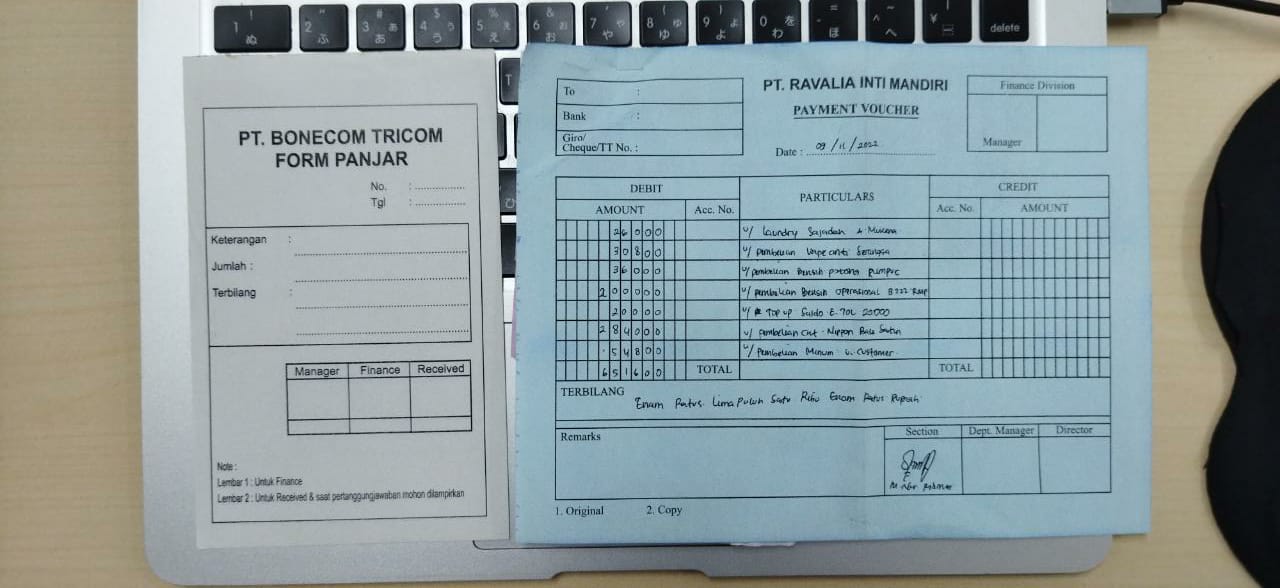 PT. BONECOM TRICOM
FORM PANJAR
No. : ..................
Tgl : ..................
Keterangan :
Jumlah :
Terbilang :
Manager Finance Received
Note :
Lembar 1 : Untuk Finance
Lembar 2 : Untuk Received & saat pertanggungjawaban mohon dilampirkan
To :
Bank :
Giro/
Cheque/TT No. :
PT. RAVALIA INTI MANDIRI
PAYMENT VOUCHER
Date : 09/11/2022
Finance Division
Manager
DEBIT PARTICULARS CREDIT
AMOUNT Acc. No. Acc. No. AMOUNT
26000 u/ Laundry Sajadah & Mukena
30800 u/ pembelian Vape anti Serangga
36000 u/ pembelian Bensin potong rumput
200000 u/ pembelian Bensin Operasional B 222 RMP
20000 u/ TOP up Saldo E-TOL 20000
284000 u/ pembelian Cat Nippon
54800 u/ Pembelian Minum u. customer
651600 TOTAL TOTAL
TERBILANG
Enam Ratus Lima Puluh Satu Ribu Enam Ratus Rupiah
Remarks
Section Dept. Manager Director
1. Original 2. Copy
delete